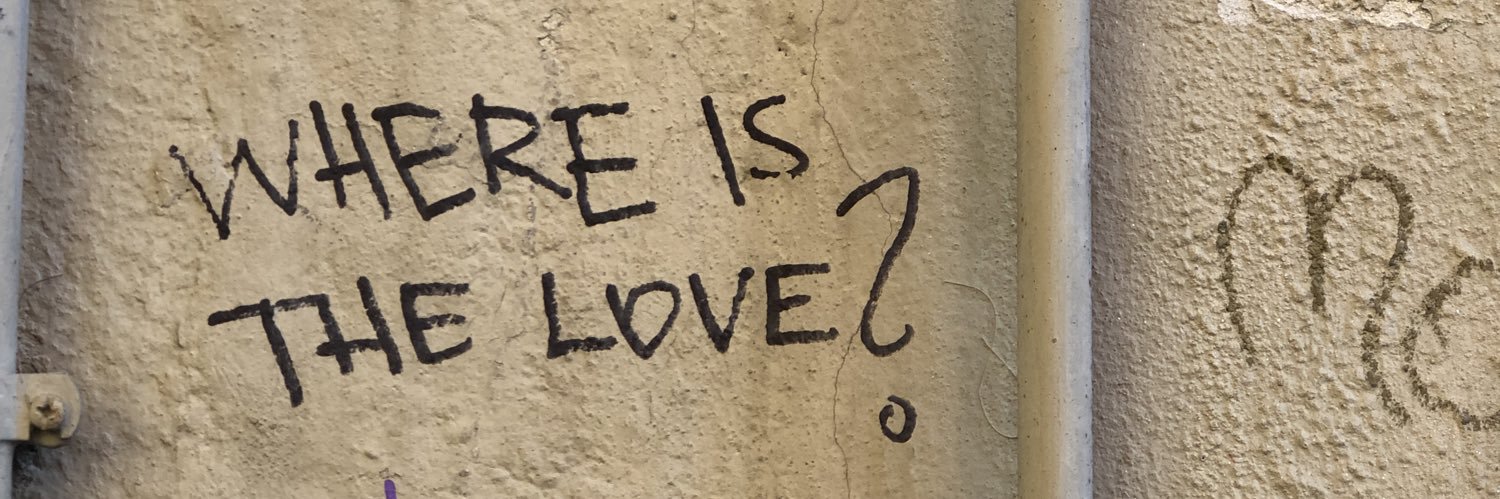 WHERE IS
THE LOVE?